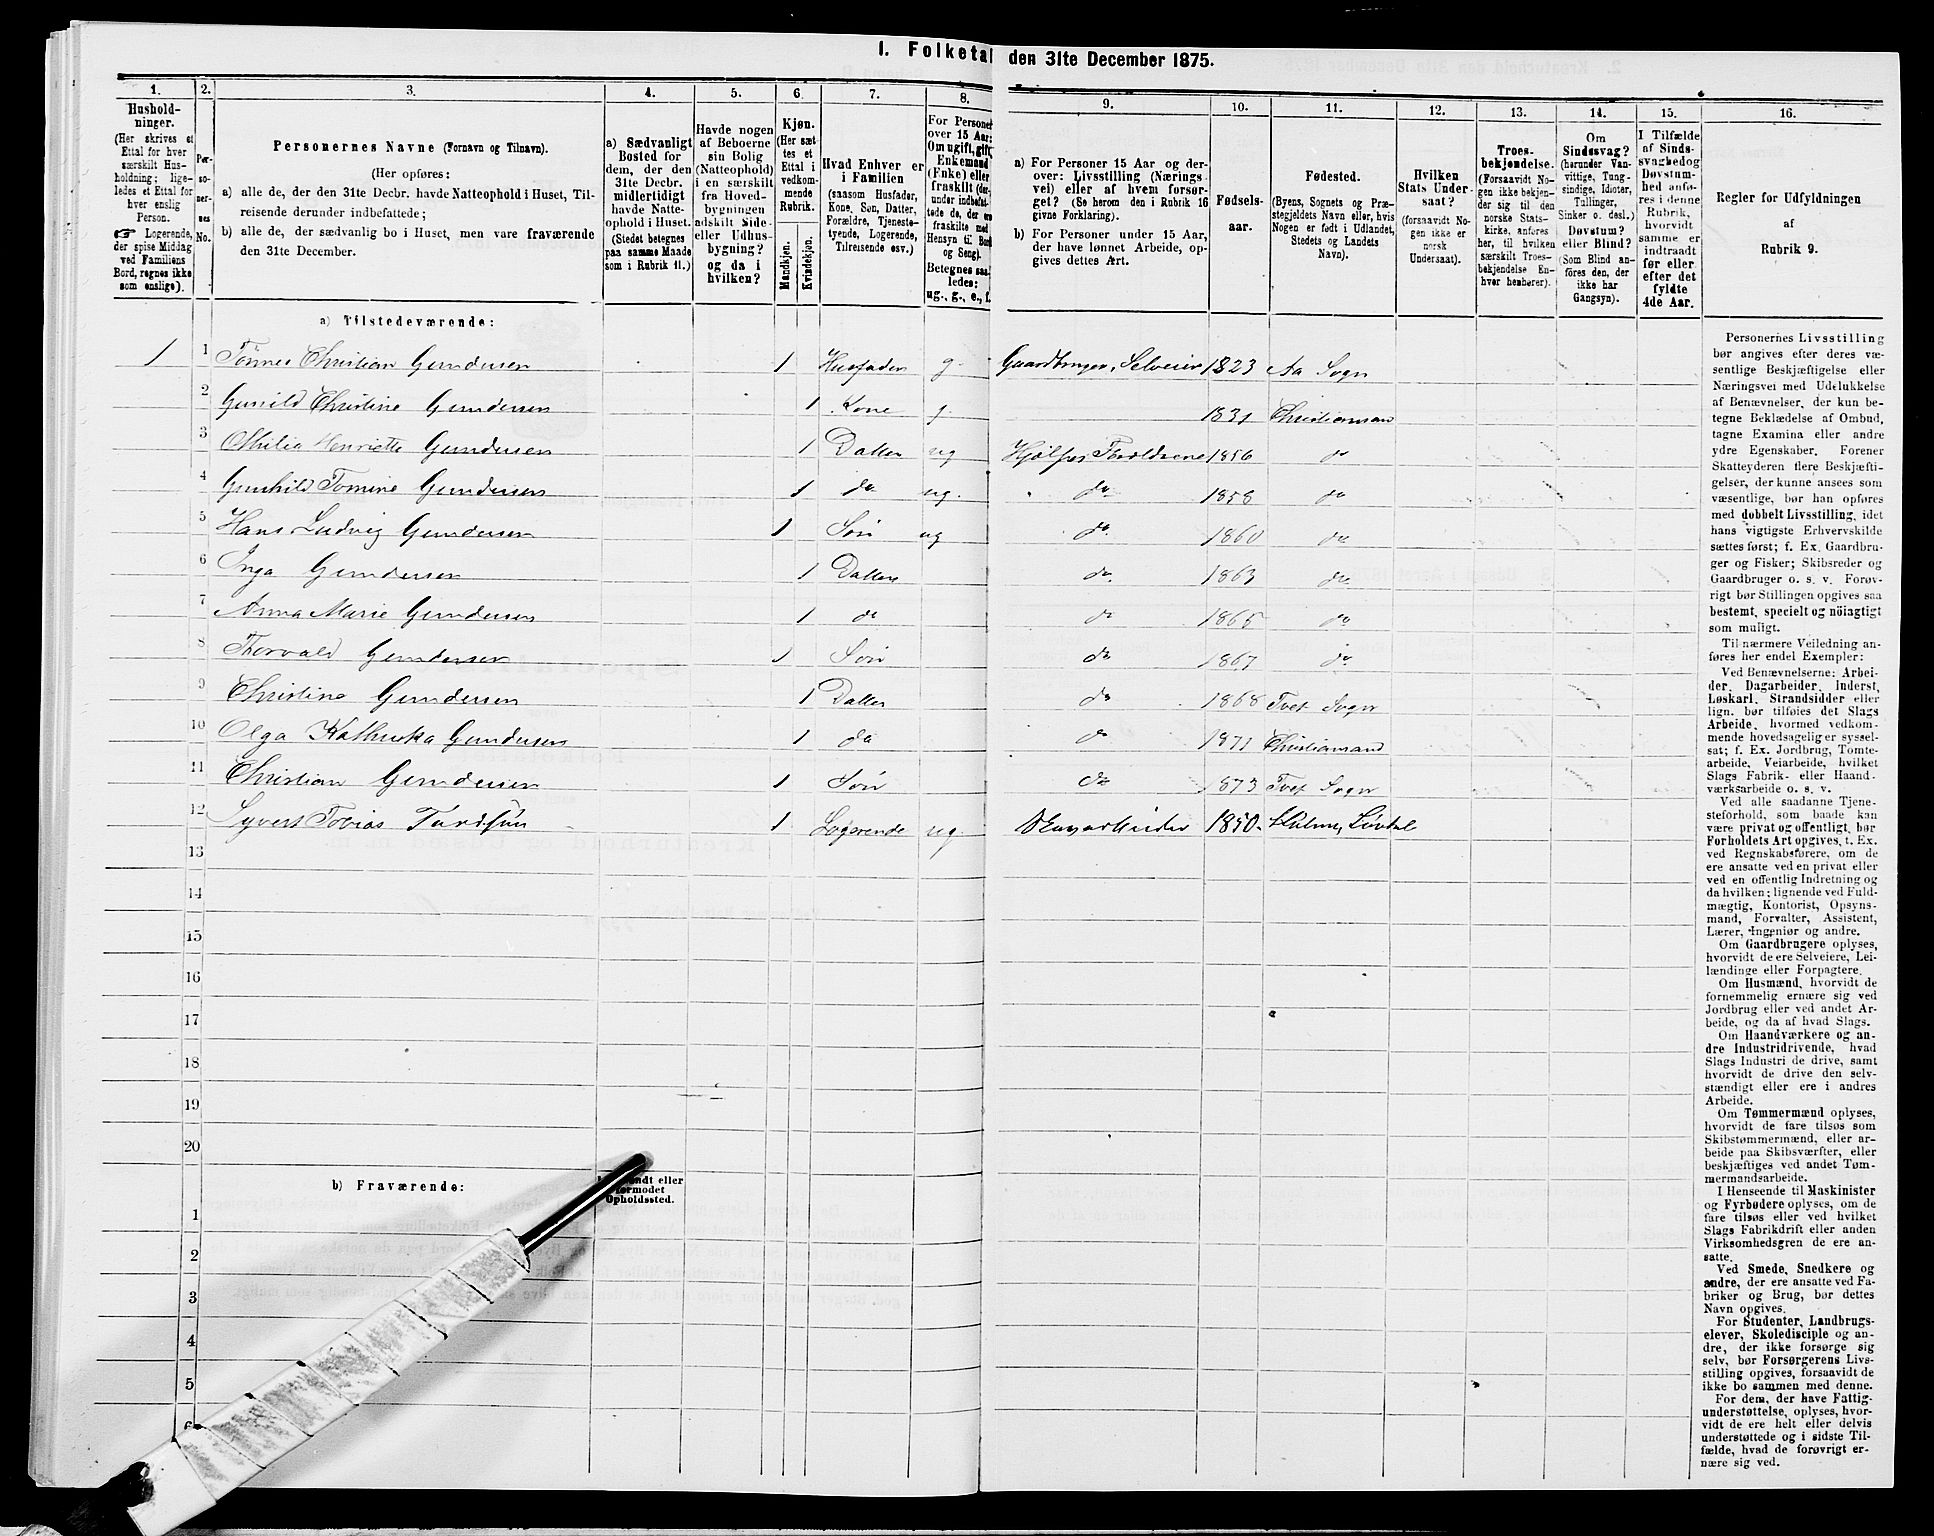 I. Folketal den 31te December 1875.
1. 2. 3. 4. 5. 6. 7. 8. 9. 10. 11. 12. 13. 14. 15. 16.
Hushold-
ninger.
(Her skrives et
Ettal for hver
særskilt Hus-
holdning; lige-
ledes et Ettal for
hver enslig
Person.
☞ Logerende,
der spise Middag
ved Familiens
Bord, regnes ikke
som enslige).
Per-
so-
ner-
nes
No.
Personernes Navne (Fornavn og Tilnavn).
(Her opføres:
a) alle de, der den 31te Decbr. havde Natteophold i Huset, Til-
reisende derunder indbefattede;
b) alle de, der sædvanlig bo i Huset, men vare fraværende
den 31te December.
a) Sædvanligt
Bosted for
dem, der den
31te Decbr.
midlertidigt
havde Natte-
ophold i Huset.
(Stedet betegnes
paa samme Maade
som i Rubrik 11.)
Havde nogen
af Beboerne
sin Bolig
(Natteophold)
i en særskilt
fra Hoved-
bygningen
adskilt Side-
eller Udhus-
bygning?
og da i
hvilken?
Kjøn.
(Her sæt-
tes et
Ettal i
vedkom-
mende
Rubrik.
Mandkjøn.
Kvindekjøn.
Hvad Enhver er
i Familien
(saasom Husfader,
Kone, Søn, Datter,
Forældre, Tjeneste-
tyende, Logerende,
Tilreisende osv.)
For Personer
over 15 Aar:
Om ugift, gift,
Enkemand
(Enke) eller
fraskilt (der-
under indbefat-
tede de, der ere
fraskilte med
Hensyn til Bord
og Seng).
Betegnes saa-
ledes:
ug., g., e., f.
a) For Personer 15 Aar og der-
over: Livsstilling (Nærings-
vei) eller af hvem forsør-
get? (Se herom den i Rubrik 16
givne Forklaring).
b) For Personer under 15 Aar,
der have lønnet Arbeide, op-
gives dettes Art.
Fødsels-
aar.
Fødested.
(Byens, Sognets og Præ-
stegjeldets Navn eller, hvis
Nogen er født i Udlandet,
Stedets og Landets
Navn).
Hvilken
Stats Under-
saat?
(forsaavidt No-
gen ikke er
norsk
Undersaat).
Troes-
bekjendelse.
(Forsaavidt No-
gen ikke bekjen-
der sig til den
norske Stats-
kirke, anføres
her, til hvilken
særskilt Troes-
bekjendelse En-
hver henhører).
Om
Sindssvag?
(herunder Van-
vittige, Tung-
sindige, Idioter,
Tullinger,
Sinker o. desl.)
Døvstum?
eller Blind?
(Som Blind an-
føres den, der
ikke har
Gangsyn).
I Tilfælde
af Sinds-
svaghed og
Døvstum-
hed anfø-
res i denne
Rubrik,
hvorvidt
samme er
indtraadt
før eller
efter det
fyldte
4de Aar.
Regler for Udfyldningen
af
Rubrik 9.
a) Tilstedeværende:
1 1 Tönnes Christian Gundersen 1 Husfader g. Gaardbruger, Selveier 1823 Aa Sogn
2 Gunild Christine Gundersen 1 Kone g. 1831 Christiansand
3 Othilia Henriette Gundersen 1 Datter ug Hjelper Forældrene 1856 do
4 Gunhild Tomine Gundersen 1 do ug. do 1858 do
5 Hans Ludvig Gundersen 1 Søn ug do 1860 do
6 Inga Gundersen 1 Datter do 1863 do
7 Anna Marie Gundersen 1 do do 1865 do
8 Thorvald Gundersen 1 Søn do 1867 do
9 Christine Gundersen 1 Datter do 1868 Tvet Sogn
10 Olga Gundersen 1 do do 1871 Christiansand
11 Christian Gundersen 1 Søn do 1873 Tvet Sogn
12 Syvert Tobias 1 Logerende ug. 1850
13
14
15
16
17
18
19
20
b) Fraværende:
Opholdssted.
1
2
3
4
5
6
Personernes Livsstilling
bør angives efter deres væ-
sentlige Beskjæftigelse eller
Næringsvei med Udelukkelse
af Benævnelser, der kun be-
tegne Beklædelse af Ombud,
tagne Examina eller andre
ydre Egenskaber. Forener
Skatteyderen flere Beskjæfti-
gelser, der kunne ansees som
væsentlige, bør han opføres
med dobbelt Livsstilling, idet
hans vigtigste Erhvervskilde
sættes først; f. Ex. Gaardbru-
ger og Fisker; Skibsreder og
Gaardbruger o. s. v. Forøv-
rigt bør Stillingen opgives saa
bestemt, specielt og nöiagtigt
som muligt.
Til nærmere Veiledning an-
føres her endel Exempler:
Ved Benævnelserne: Arbei-
der, Dagarbeider, Inderst,
Løskarl, Strandsidder eller
lign. bør tilføies det Slags
Arbeide, hvormed vedkom-
mende hovedsagelig er syssel-
sat; f. Ex. Jordbrug, Tomte-
arbeide, Veiarbeide, hvilket
Slags Fabrik- eller Haand-
værksarbeide o. s. v.
Ved alle saadanne Tjene-
steforhold, som baade kan
være privat og offentligt, bør
Forholdets Art opgives, f. Ex.
ved Regnskabsførere, om de
ere ansatte ved en privat eller
ved en offentlig Indretning og
da hvilken; lignende ved Fuld-
mægtig, Kontorist, Opsyns-
mand, Forvalter, Assistent,
Lærer, Ingeniør og andre.
Om Gaardbrugere oplyses,
hvorvidt de ere Selveiere, Lei-
lændinge eller Forpagtere.
Om Husmænd, hvorvidt de
fornemmelig ernære sig ved
Jordbrug eller ved andet Ar-
beide, og da af hvad Slags.
Om Haandværkere og an-
dre Industridrivende, hvad
Slags Industri de drive, samt
hvorvidt de drive den selv-
stændigt eller ere i andres
Arbeide.
Om Tømmermænd oplyses,
hvorvidt de fare tilsøs som
Skibstømmermænd, eller ar-
beide paa Skibsværfter, eller
beskjæftiges ved andet Tøm-
mermandsarbeide.
I Henseende til Maskinister
og Fyrbødere oplyses, om de
fare tilsøs eller ved hvilket
Slags Fabrikdrift eller anden
Virksomhedsgren de ere an-
satte.
Ved Smede, Snedkere og
andre, der ere ansatte ved Fa-
briker og Brug, bør dettes
Navn opgives.
For Studenter, Landbrugs-
elever, Skoledisciple og an-
dre, der ikke forsørge sig
selv, bør Forsørgerens Livs-
stilling opgives, forsaavidt de
ikke bo sammen med denne.
For dem, der have Fattig-
understøttelse, oplyses, hvor-
vidt de ere helt eller delvis
understøttede og i sidste Til-
fælde, hvad de forøvrigt er-
nære sig ved.